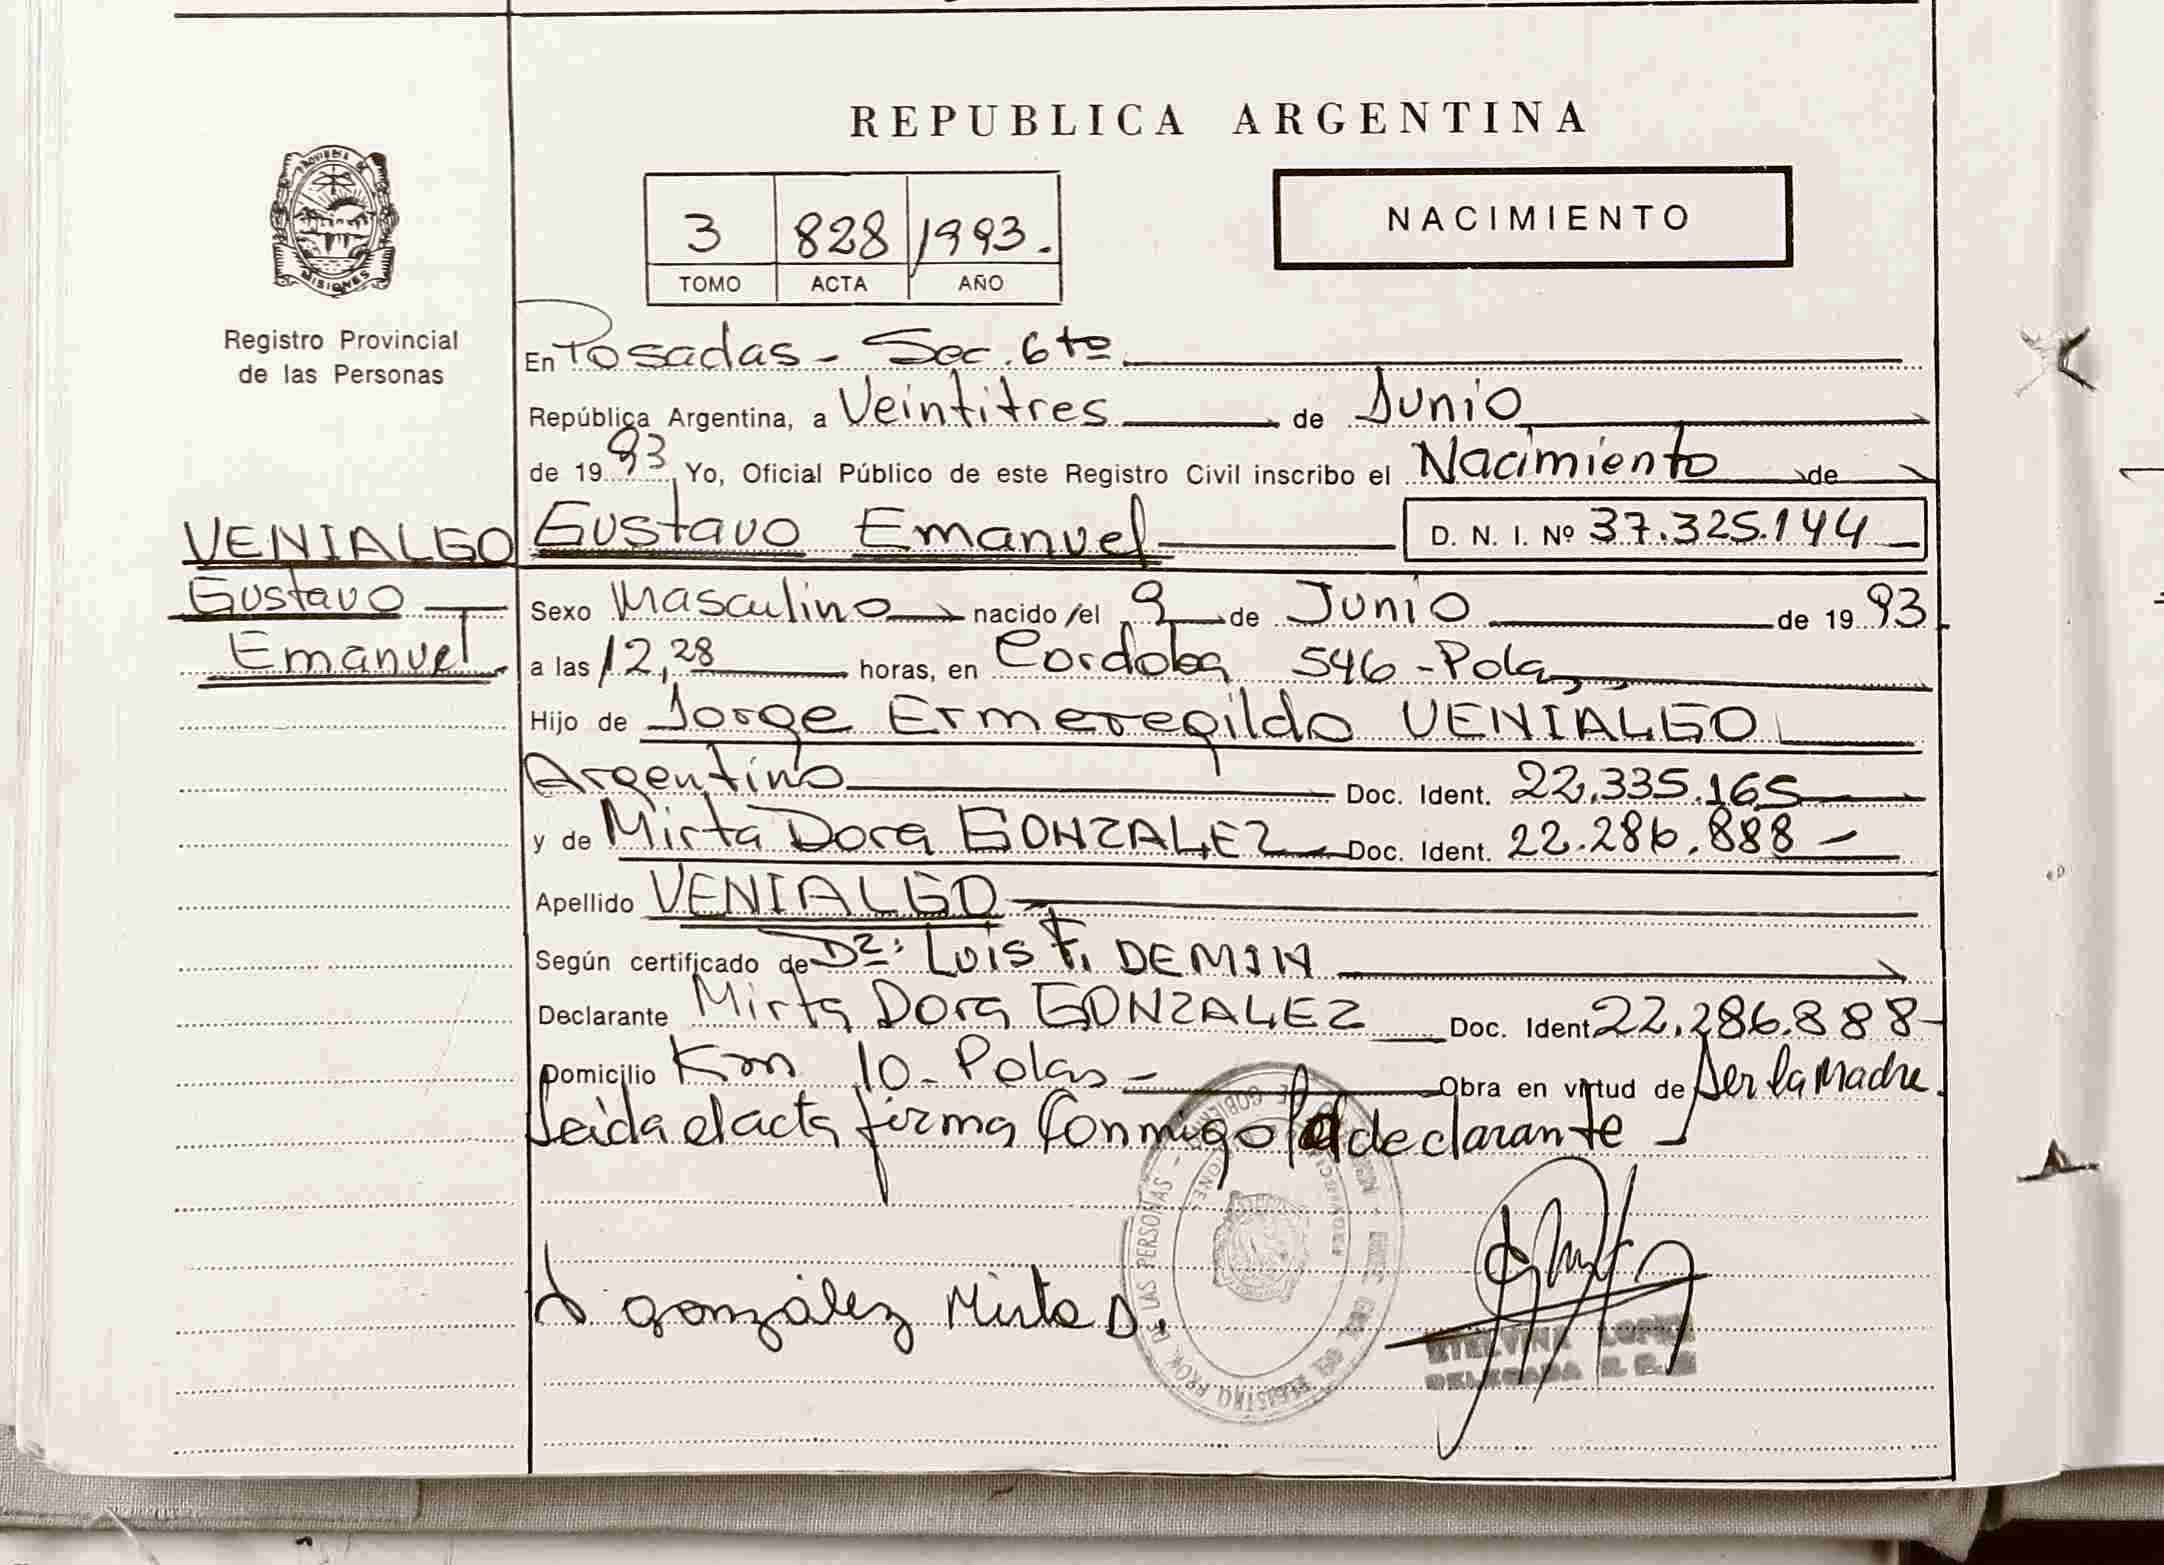 REPUBLICA ARGENTINA
PROVINCIA DE
MISIONES
Registro Provincial
de las Personas
NACIMIENTO
3 828 1993.
TOMO ACTA AÑO
En Posadas - Sec. 6ta
República Argentina, a Veintitres de Junio
de 1993 Yo, Oficial Público de este Registro Civil inscribo el Nacimiento de
VENIALGO Gustavo Emanuel D. N. I. Nº 37.325.144
Gustavo
Emanuel
Sexo Masculino nacido /el 9 de Junio de 1993
a las 12,28 horas, en Cordoba 546 - Pdas
Hijo de Jorge Ermeregildo VENIALGO
Argentino Doc. Ident. 22.335.165
y de Mirta Dora GONZALEZ Doc. Ident. 22.286.888 -
Apellido VENIALGO
Según certificado de Dr: Luis F. DEMIN
Declarante Mirta Dora GONZALEZ Doc. Ident 22.286.888-
Domicilio Km 10 - Pdas - Obra en virtud de Ser la Madre.
Leida el acta firma Conmigo la declarante
González Mirta D.
ETELVINA LOPEZ
DELEGADA